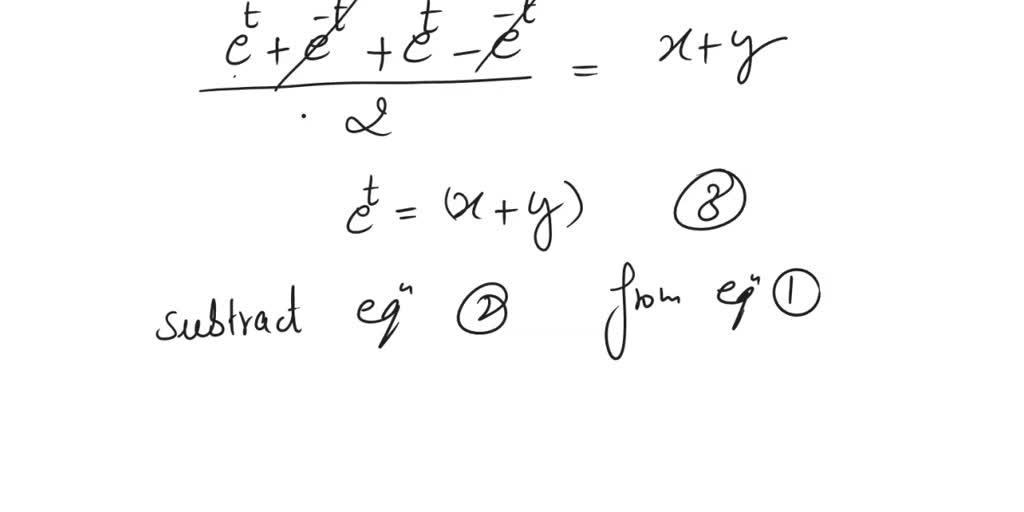 e^t + e^-t + e^t - e^-t / 2 = x+y
e^t = (x+y) ③
subtract eqⁿ ② from eqⁿ ①